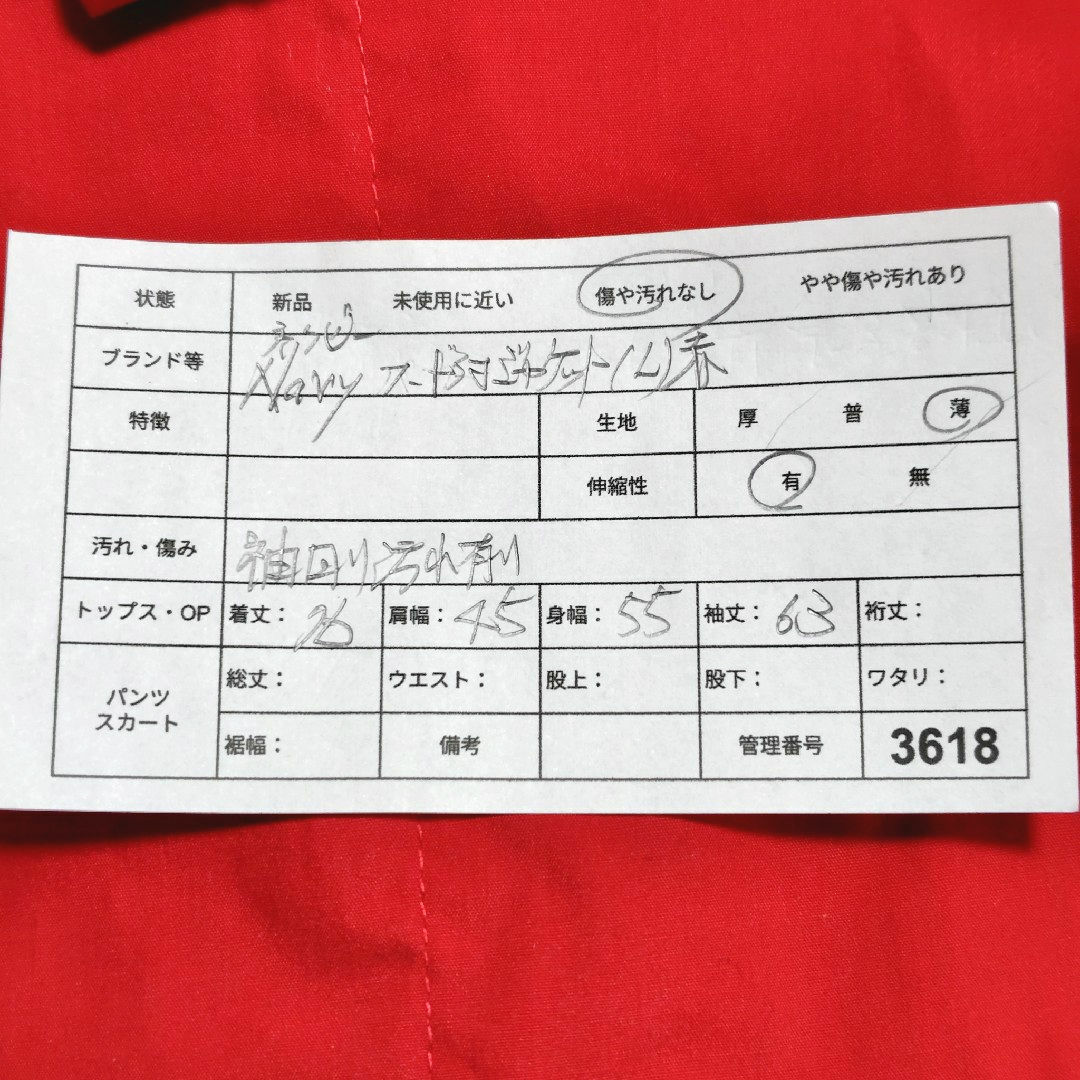 状態 新品 未使用に近い 傷や汚れなし やや傷や汚れあり
ブランド等 Navy フード ジャケット(L)赤
特徴 生地 厚 普 薄
伸縮性 有 無
汚れ・傷み 袖口 汚れ有り
トップス・OP 着丈: 肩幅:45 身幅:55 袖丈:63 裄丈:
パンツ スカート 総丈: ウエスト: 股上: 股下: ワタリ:
裾幅: 備考 管理番号 3618